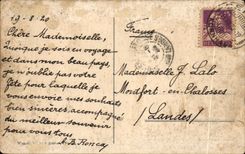 19-8-20
Chère Mademoiselle,
Quoique je sois en voyage
et dans mon beau pays,
je n'oublie pas votre
fête pour laquelle je
vous envoie mes souhaits
bien sincères, accompagnés
du meilleur souvenir
pour vous tous.
France
Mademoiselle J. Lalo
Montfort-en-Chalosses
(Landes)